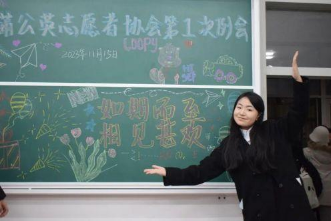 蒲公英志愿者协会第1次例会
LOOPY
2023年11月15日
如期而至
相见甚欢